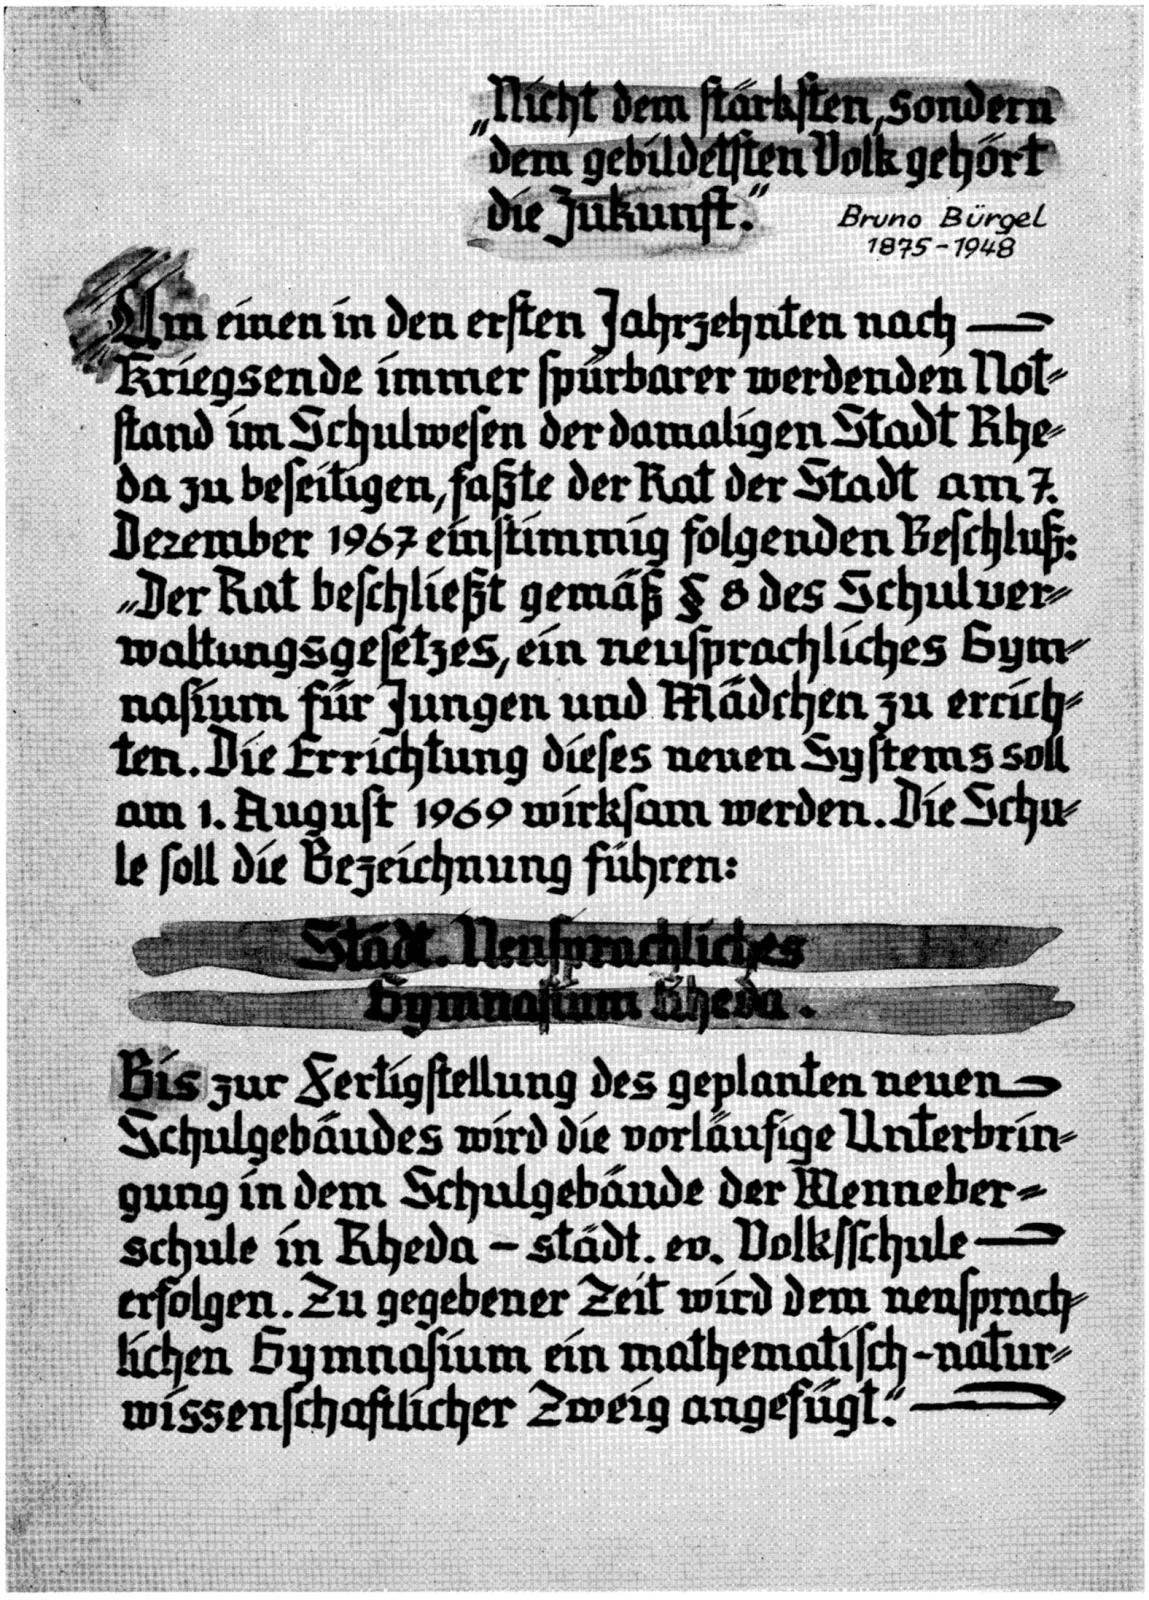 „Nicht dem stärksten, sondern
dem gebildetsten Volk gehört
die Zukunft.“
Bruno Bürgel
1875-1948
Um einen in den ersten Jahrzehnten nach
Kriegsende immer spürbarer werdenden Not-
stand im Schulwesen der damaligen Stadt Rhe-
da zu beseitigen, faßte der Rat der Stadt am 7.
Dezember 1967 einstimmig folgenden Beschluß:
„Der Rat beschließt gemäß § 8 des Schulver-
waltungsgesetzes, ein neusprachliches Gym-
nasium für Jungen und Mädchen zu errich-
ten. Die Errichtung dieses neuen Systems soll
am 1. August 1969 wirksam werden. Die Schu-
le soll die Bezeichnung führen:
Städt. Neusprachliches
Gymnasium Rheda.
Bis zur Fertigstellung des geplanten neuen
Schulgebäudes wird die vorläufige Unterbrin-
gung in dem Schulgebäude der Wenneber-
schule in Rheda – städt. ev. Volksschule
erfolgen. Zu gegebener Zeit wird dem neusprach-
lichen Gymnasium ein mathematisch-natur-
wissenschaftlicher Zweig angefügt.“